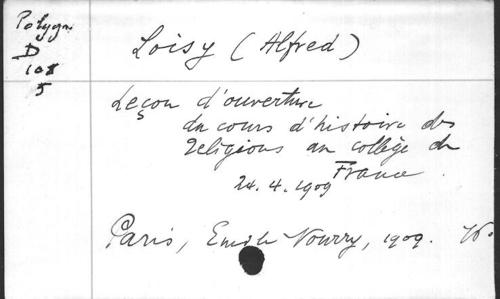 Polygr.
D
108
5
Loisy (Alfred)
Leçon d'ouverture
du cours d'histoire des
religions au collège de
France.
24.4.1909
Paris, Emile Nourry, 1909.